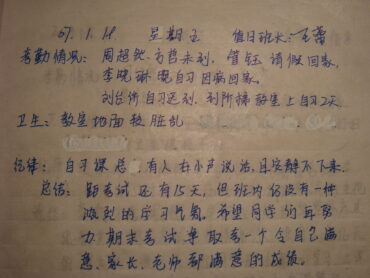 07.1.18 星期五 值日班长:王蕾
考勤情况: 周超然、方哲未到, 管钰请假回家,
李晓琳晚自习因病回家,
刘台侨自习迟到. 到阶梯教室上自习2天
卫生: 教室地面较脏乱
纪律: 自习课总有人在小声说话, 且安静不下来.
总结: 距考试还有15天, 但班内仍没有一种
激烈的学习气氛. 希望同学们再努
力. 期末考试争取考一个令自己满
意、家长、老师都满意的成绩.